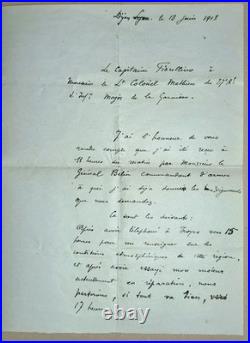 Dijon Lyon, le 13 juin 1918
Le Capitaine Fiorellino à
Monsieur le Lt Colonel Mathieu du 27e Rt
d'Infie Major de la Garnison.
J'ai l'honneur de vous
rendre compte que j'ai été reçu à
11 heures du matin par Monsieur le
Général Belin commandant d'armes
à qui j'ai déjà donné les renseignements
que vous demandez.
Ce sont les suivants:
Après avoir téléphoné à Troyes vers 15
heures pour me renseigner sur les
conditions atmosphériques de cette région,
et après avoir essayé mon moteur
actuellement en réparation, nous
partirons, si tout va bien, vers
17 heures.
picclick.fr